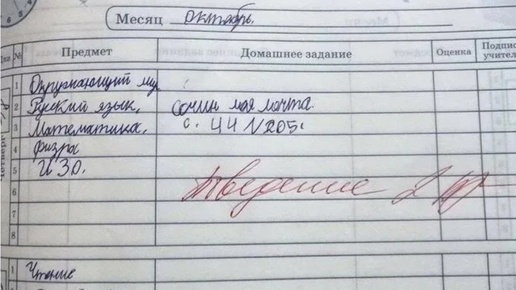 Месяц октябрь.
№ Предмет Домашнее задание Оценка Подпись учителя
1 Окружающий мир
2 Русский язык, сочин моя мечта.
3 Математика. с. 44 №205.
4 Физра
5 ИЗО.
6 Поведение 2
7
8
Четверг
1 Чтение